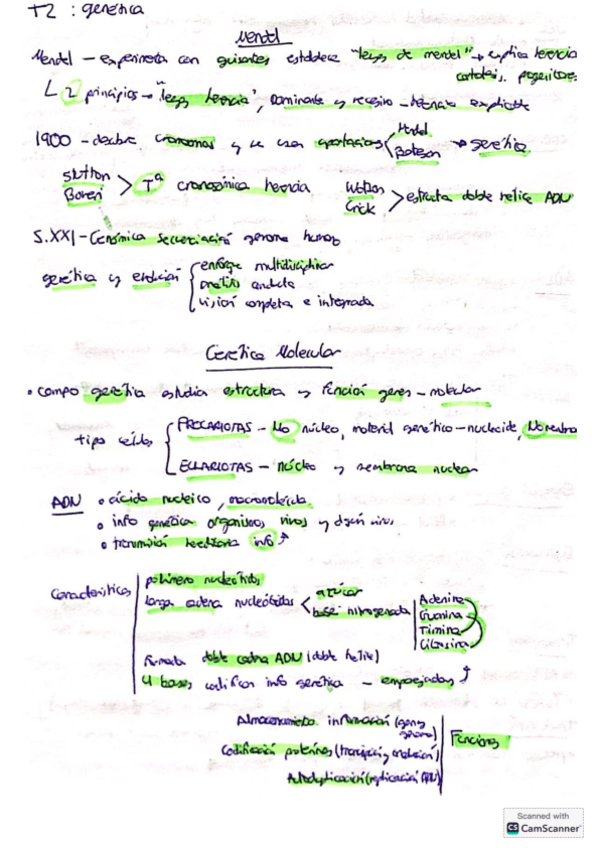 T2 : genética
Mendel
Mendel – experimenta con guisantes establece "leyes de mendel" → explica herencia
caracteres. progenitores
2 principios → "leyes herencia", Dominante y recesivo – herencia explicable
1900 – descubre cromosomas y se usan aportaciones Mendel
Bateson → genética
Sutton
Boveri > Tª cromosómica herencia
Watson
Crick > estructura doble hélice ADN
S.XXI – Genómica secuenciación genoma humano
genética y evolución enfoque multidisciplinar
visión completa e integrada
Genética Molecular
• campo genética estudia estructura y función genes – molecular
tipo células PROCARIOTAS – No núcleo, material genético – nucleoide, No membrana
EUCARIOTAS – núcleo y membrana nuclear
ADN • ácido nucleico, macromolécula
• info genética organismos vivos y algún virus
• transmisión hereditaria info
Características polímero nucleótidos
larga cadena nucleótidos < azúcar
base nitrogenada Adenina
Guanina
Timina
Citosina
Formada doble cadena ADN (doble hélice)
4 bases codifican info genética – emparejadas
Almacenamiento información (genes
genoma)
Codificación proteínas (transcripción y traducción) Funciones
Autoduplicación (replicación ADN)
Scanned with
CS CamScanner